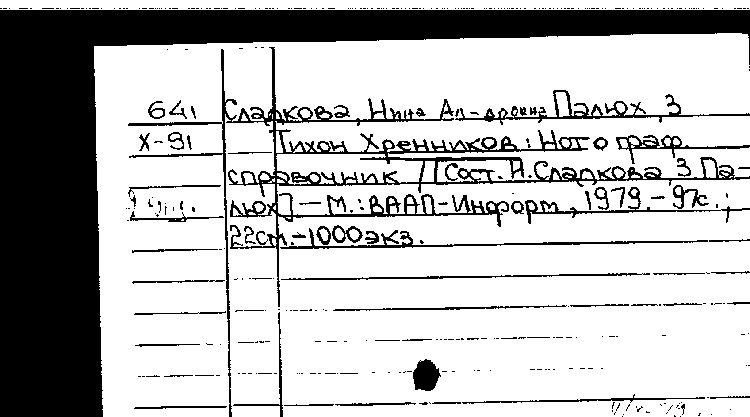 641 Сладкова, Нина Ал-дровна, Палюх, З
Х-91 Тихон Хренников: Нотограф.
справочник / [Сост. Н. Сладкова, З. Па-
люх] — М.: ВААП-Информ, 1979. - 97с.;
22см. - 1000 экз.